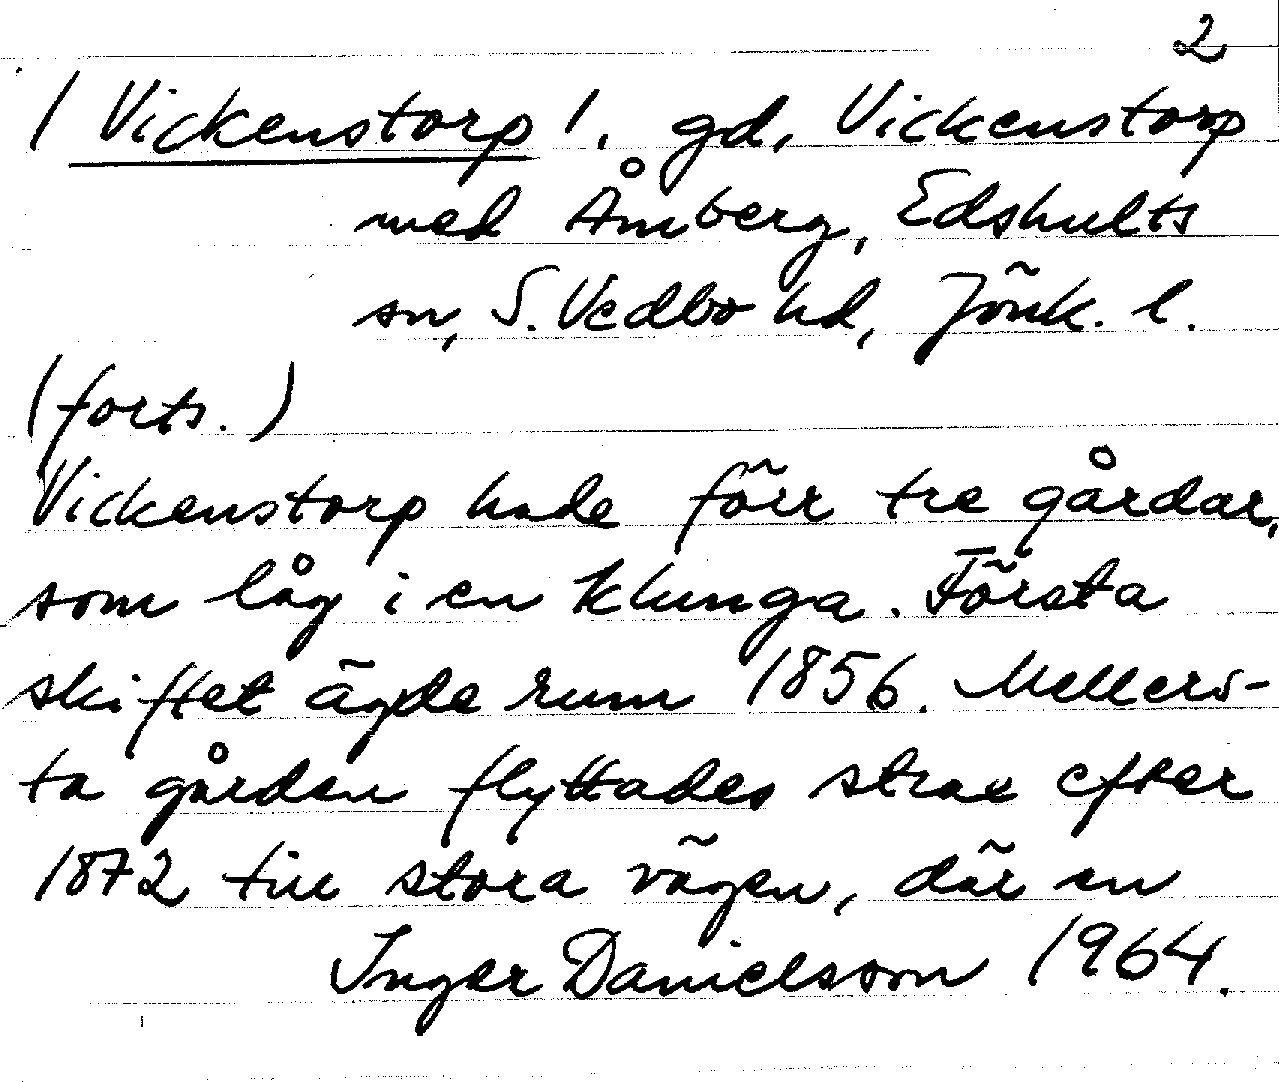 2
/ Vickenstorp /. gd, Vickenstorp
med Åmberg, Edshults
sn, S. Vedbo hd, Jönk. l.
(forts.)
Vickenstorp hade förr tre gårdar,
som låg i en klunga. Första
skiftet ägde rum 1856. Mellers-
ta gården flyttades strax efter
1872 till stora vägen, där en
Inger Danielsson 1964.